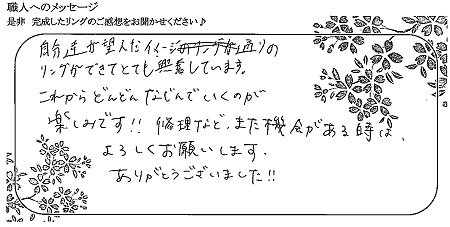 職人へのメッセージ
是非 完成したリングのご感想をお聞かせください♪
自分達が望んだイメージ通りの
リングができてとても興奮しています。
これからどんどんなじんでいくのが
楽しみです!! 修理など、また機会がある時は、
よろしくお願いします。
ありがとうございました!!